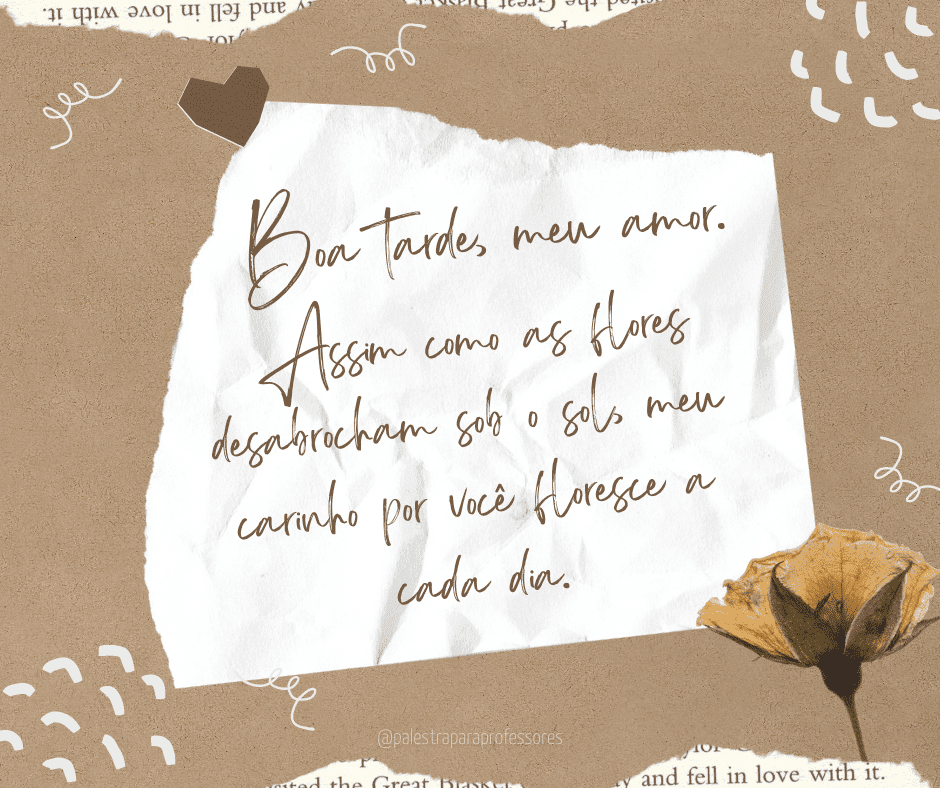 and fell in love with it.
sited the Great Blasket
Boa tarde, meu amor.
Assim como as flores
desabrocham sob o sol, meu
carinho por você floresce a
cada dia.
@palestraparaprofessores
sited the Great Blasket
and fell in love with it.